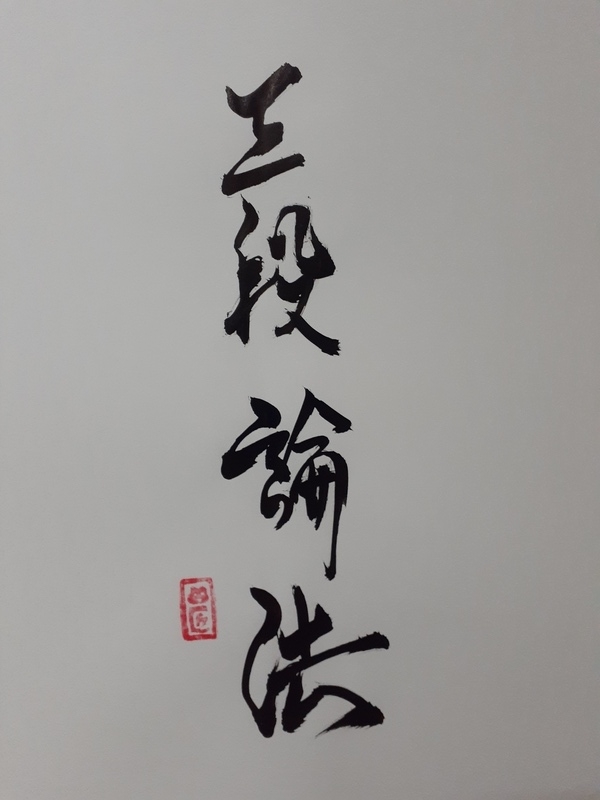 三段論法